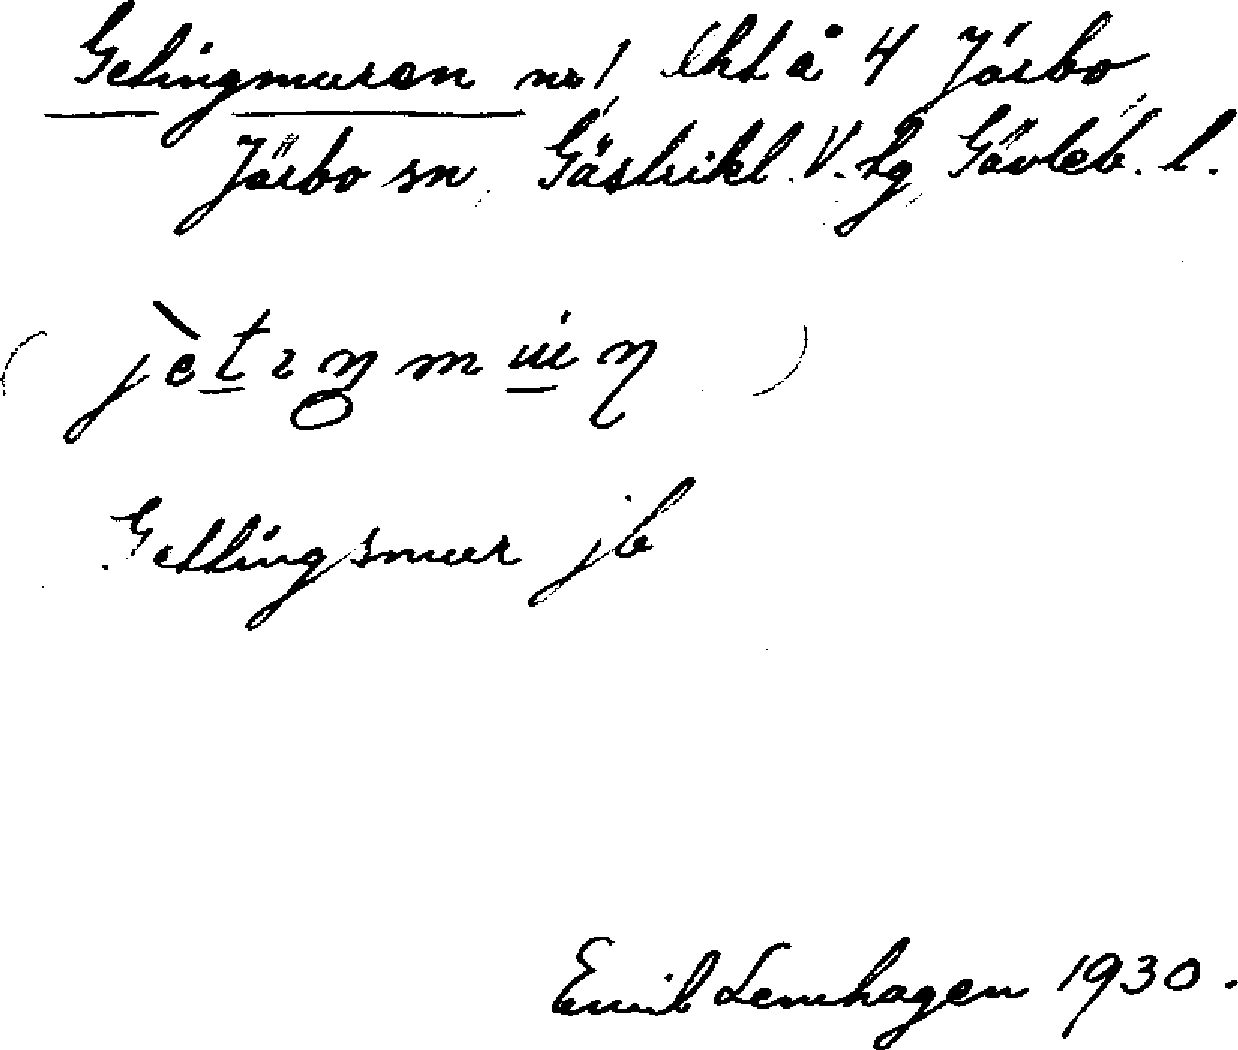 Getingmuren nr 1 lht å 4 Järbo,
Järbo sn, Gästrikl. V. tg, Gävleb. l.
Gettingsmur jb
Emil Lenhagen 1930.